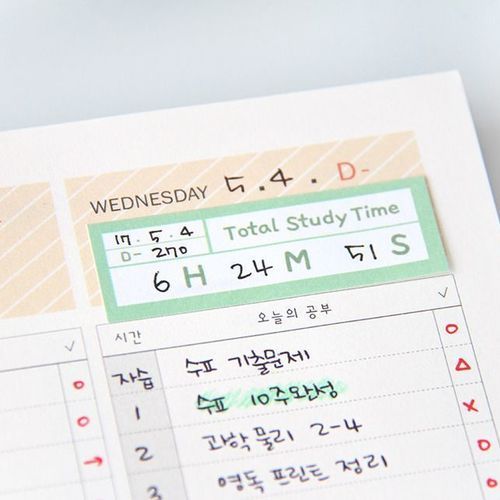 WEDNESDAY 5.4. D-
17.5.4 Total Study Time
D-270
6H 24M 51S
시간 오늘의 공부 ✓
자습 수프 기출문제 O
1 수프 10주완성 △
2 과학 물리 2-4 X
3 영독 프린트 정리 O